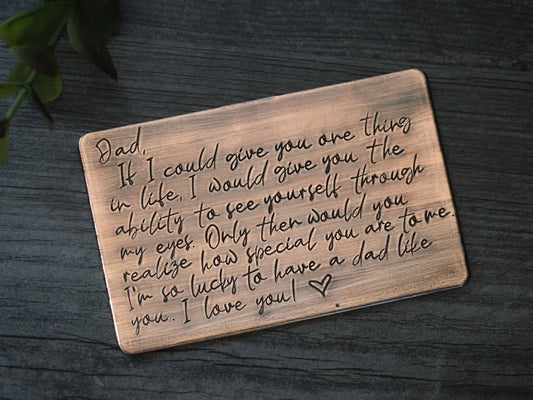 Dad,
If I could give you one thing
in life, I would give you the
ability to see yourself through
my eyes. Only then would you
realize how special you are to me.
I'm so lucky to have a dad like
you. I love you! ♡